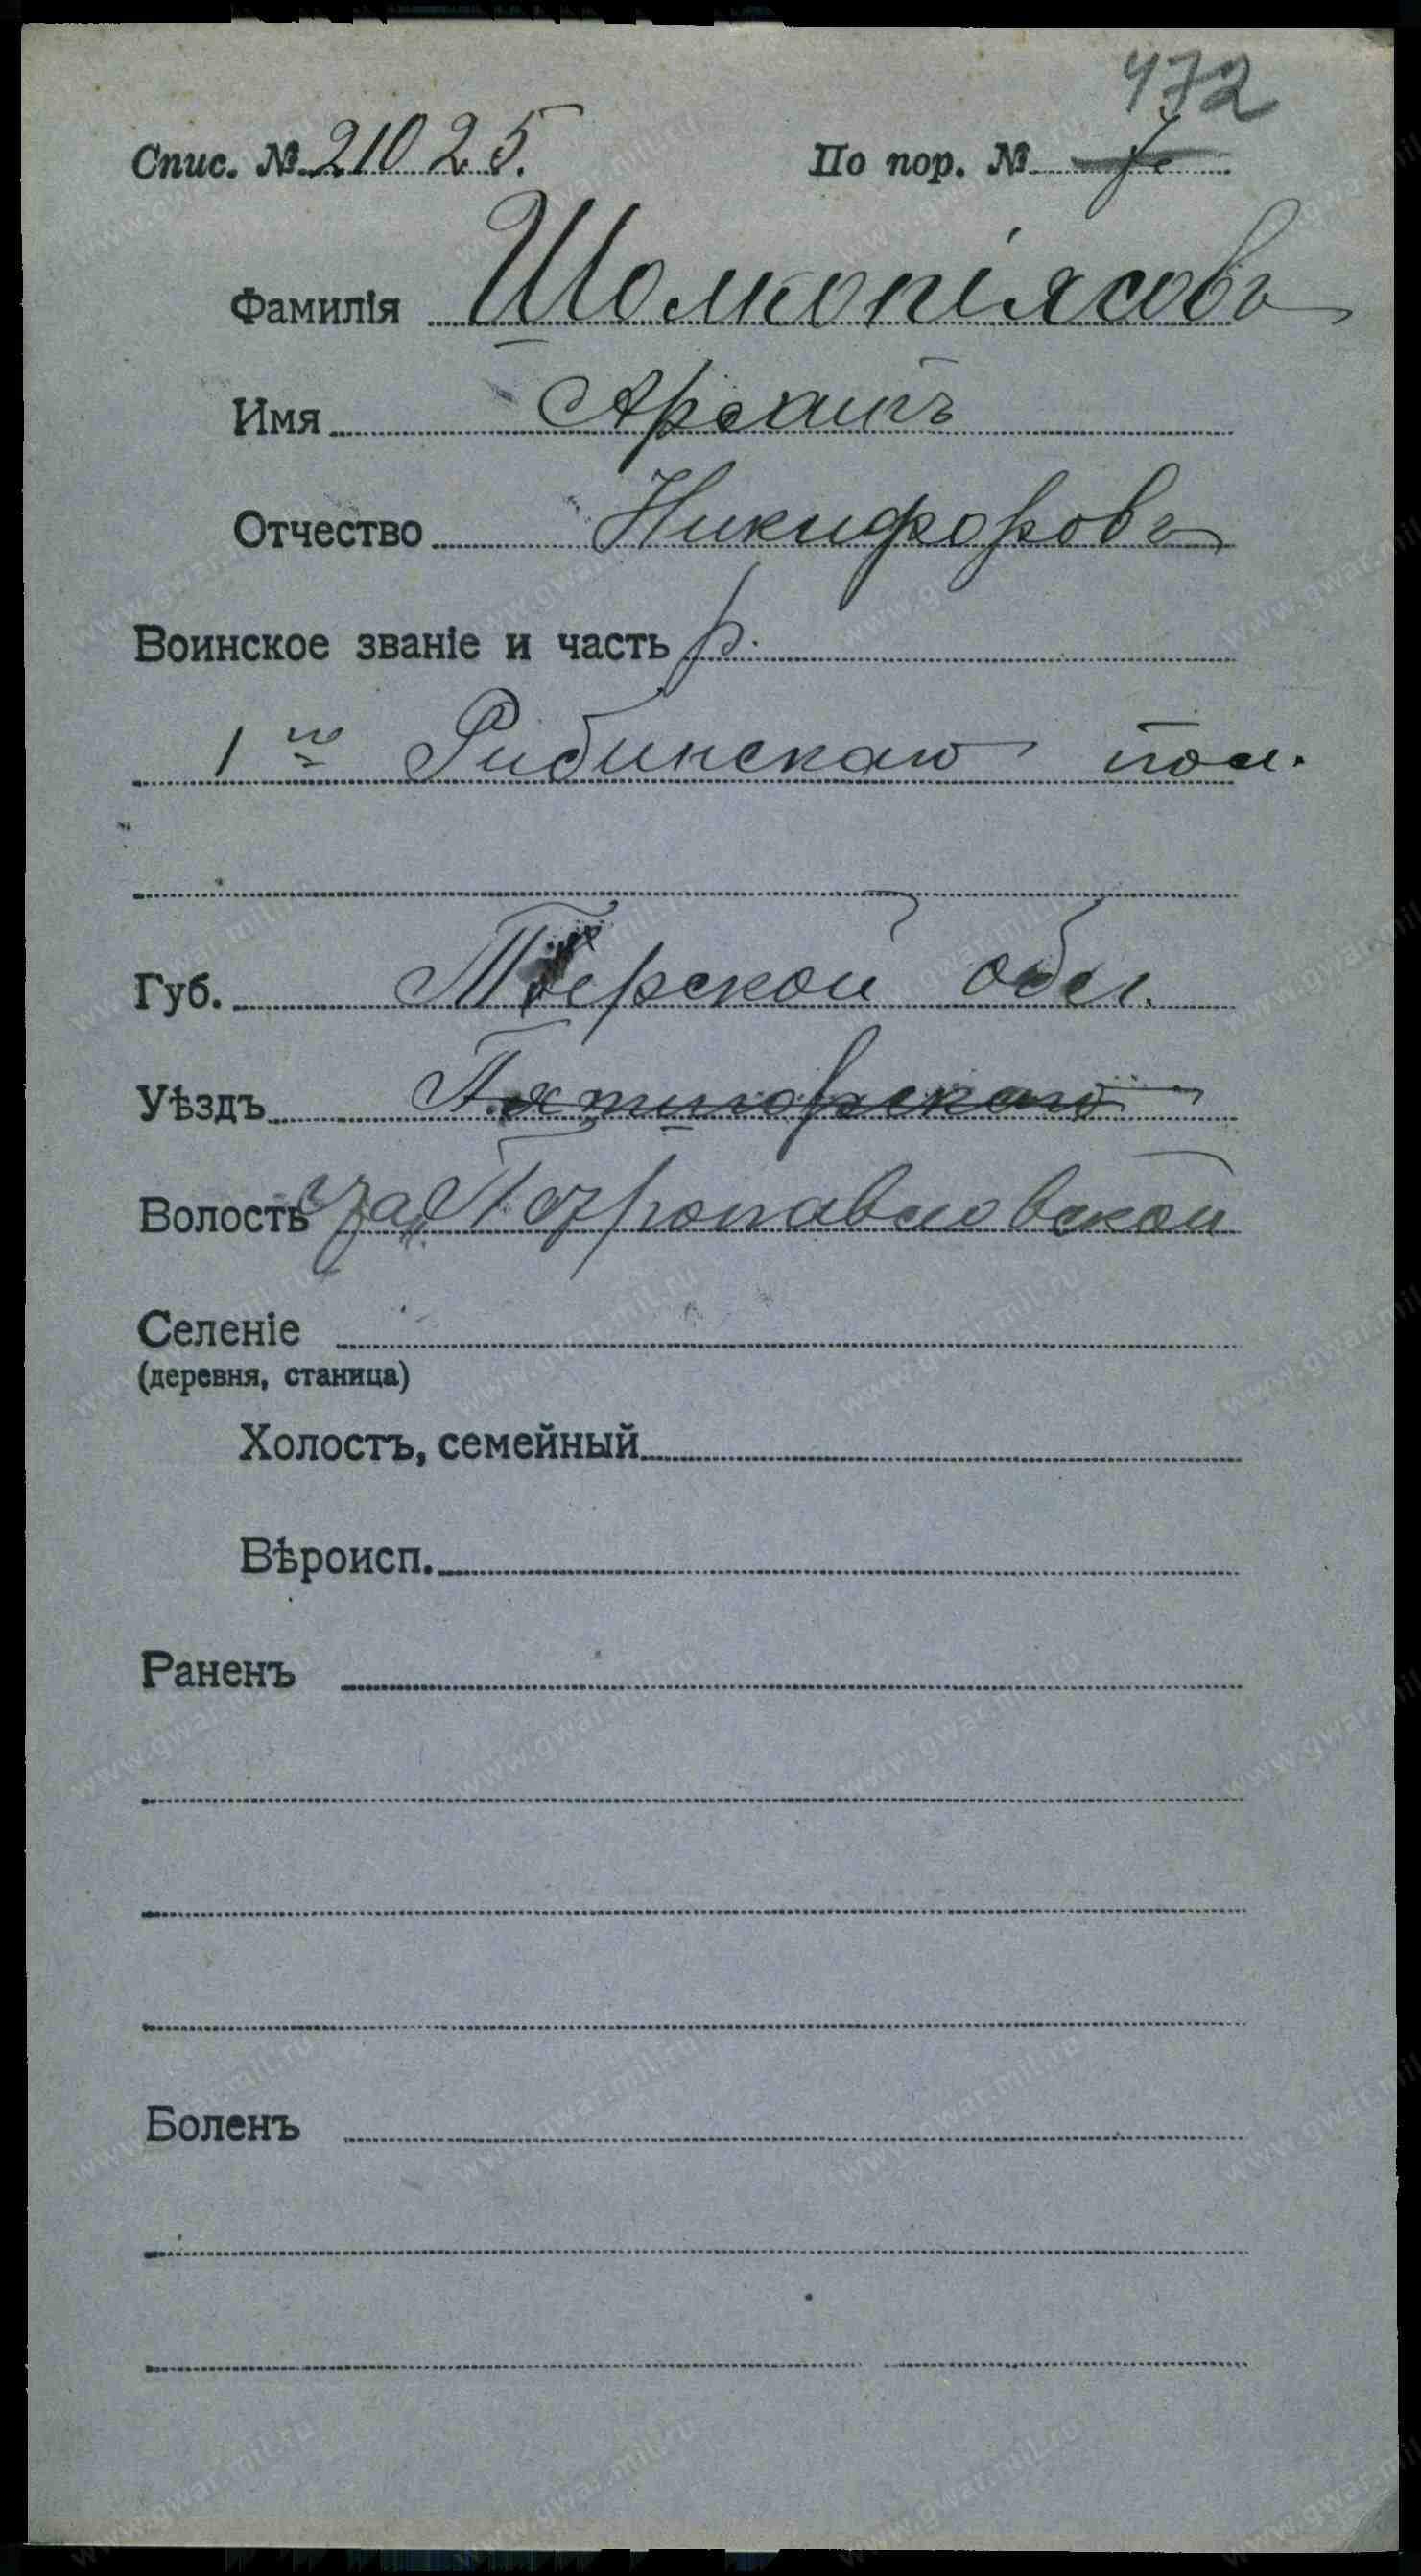 472
Спис. № 21025. По пор. № 7
Фамилія Шолкопіясовъ
Имя
Отчество Никифоровъ
Воинское званіе и часть р.
1го Рибинскаго пол.
Губ. Терской обл.
Уѣздъ Пятигорскаго
Волость Петропавловской
Селеніе
(деревня, станица)
Холостъ, семейный
Вѣроисп.
Раненъ
Боленъ